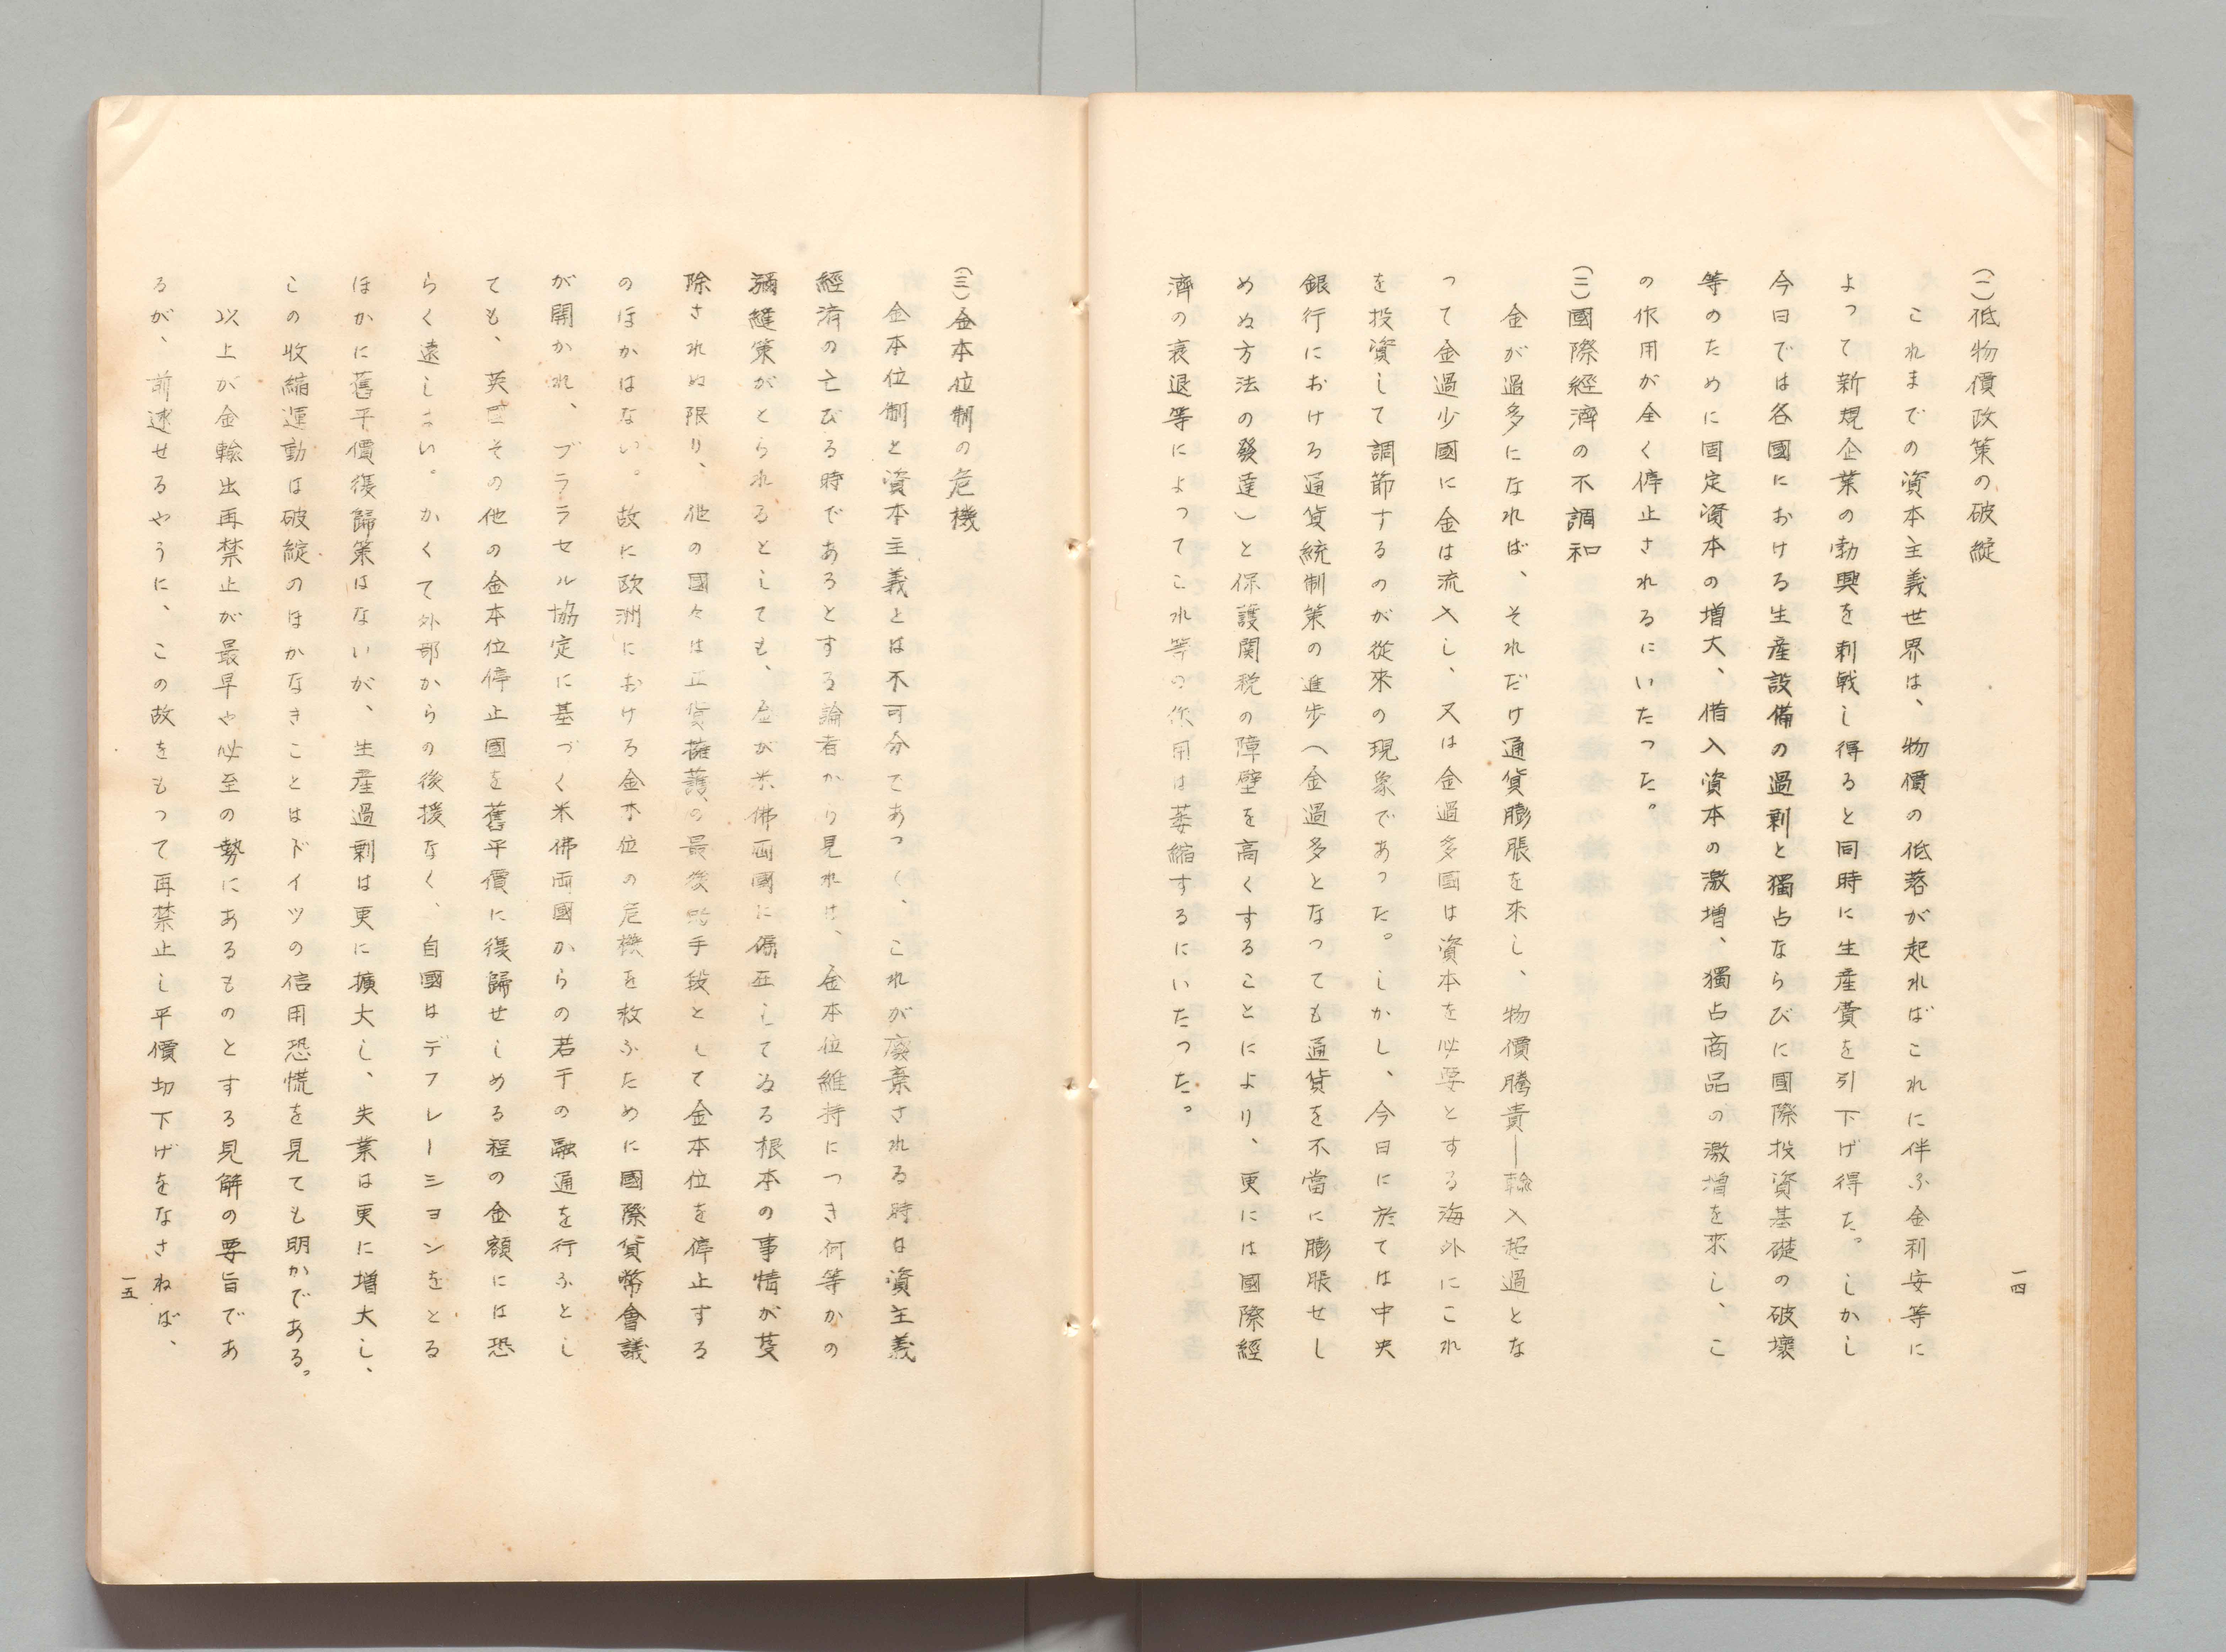 (一)低物價政策の破綻
これまでの資本主義世界は、物價の低落が起ればこれに伴ふ金利安等に
よつて新規企業の勃興を刺戟し得ると同時に生産費を引下げ得た。しかし
今日では各國における生産設備の過剰と獨占ならびに國際投資基礎の破壞
等のために固定資本の増大、借入資本の激増、獨占商品の激増を來し、こ
の作用が全く停止されるにいたつた。
(二)國際經濟の不調和
金が過多になれば、それだけ通貨膨脹を來し、物價騰貴―輸入超過とな
つて金過少國に金は流入し、又は金過多國は資本を必要とする海外にこれ
を投資して調節するのが從來の現象であつた。しかし、今日に於ては中央
銀行における通貨統制策の進歩(金過多となつても通貨を不當に膨脹せし
めぬ方法の發達)と保護関税の障壁を高くすることにより、更には國際經
濟の衰退等によつてこれ等の作用は萎縮するにいたつた。
一四
(三)金本位制の危機
金本位制と資本主義とは不可分であつて、これが廢棄される時は資主義
經済の亡びる時であるとする論者から見れば、金本位維持につき何等かの
彌縫策がとられるとしても、金が米佛両國に偏在してゐる根本の事情が芟
除されぬ限り、他の國々は正貨擁護の最後的手段として金本位を停止する
のほかはない。故に欧洲における金本位の危機を救ふために國際貨幣會議
が開かれ、ブラッセル協定に基づく米佛両國からの若干の融通を行ふとし
ても、英国その他の金本位停止國を舊平價に復歸せしめる程の金額には恐
らく遠しまい。かくて外部からの後援なく、自國はデフレーションをとる
ほかに舊平價復歸策はないが、生産過剰は更に擴大し、失業は更に増大し、
この收縮運動は破綻のほかなきことはドイツの信用恐慌を見ても明かである。
以上が金輸出再禁止が最早や必至の勢にあるものとする見解の要旨であ
るが、前述せるやうに、この故をもつて再禁止し平價切下げをなさねば、
一五